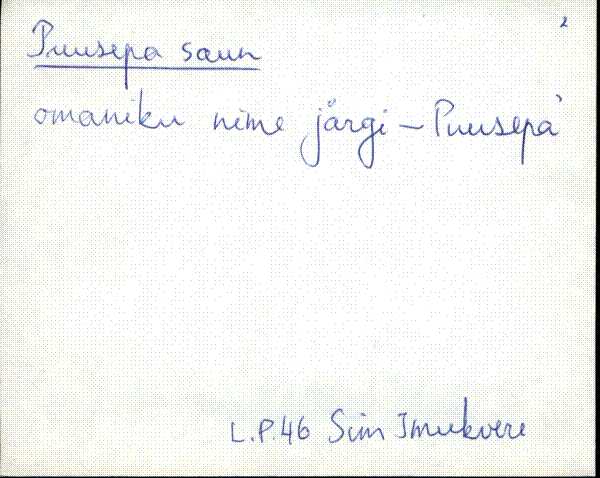 2
Puusepa saun
omaniku nime järgi – Puusepa
L.P.46 Sim Imukvere